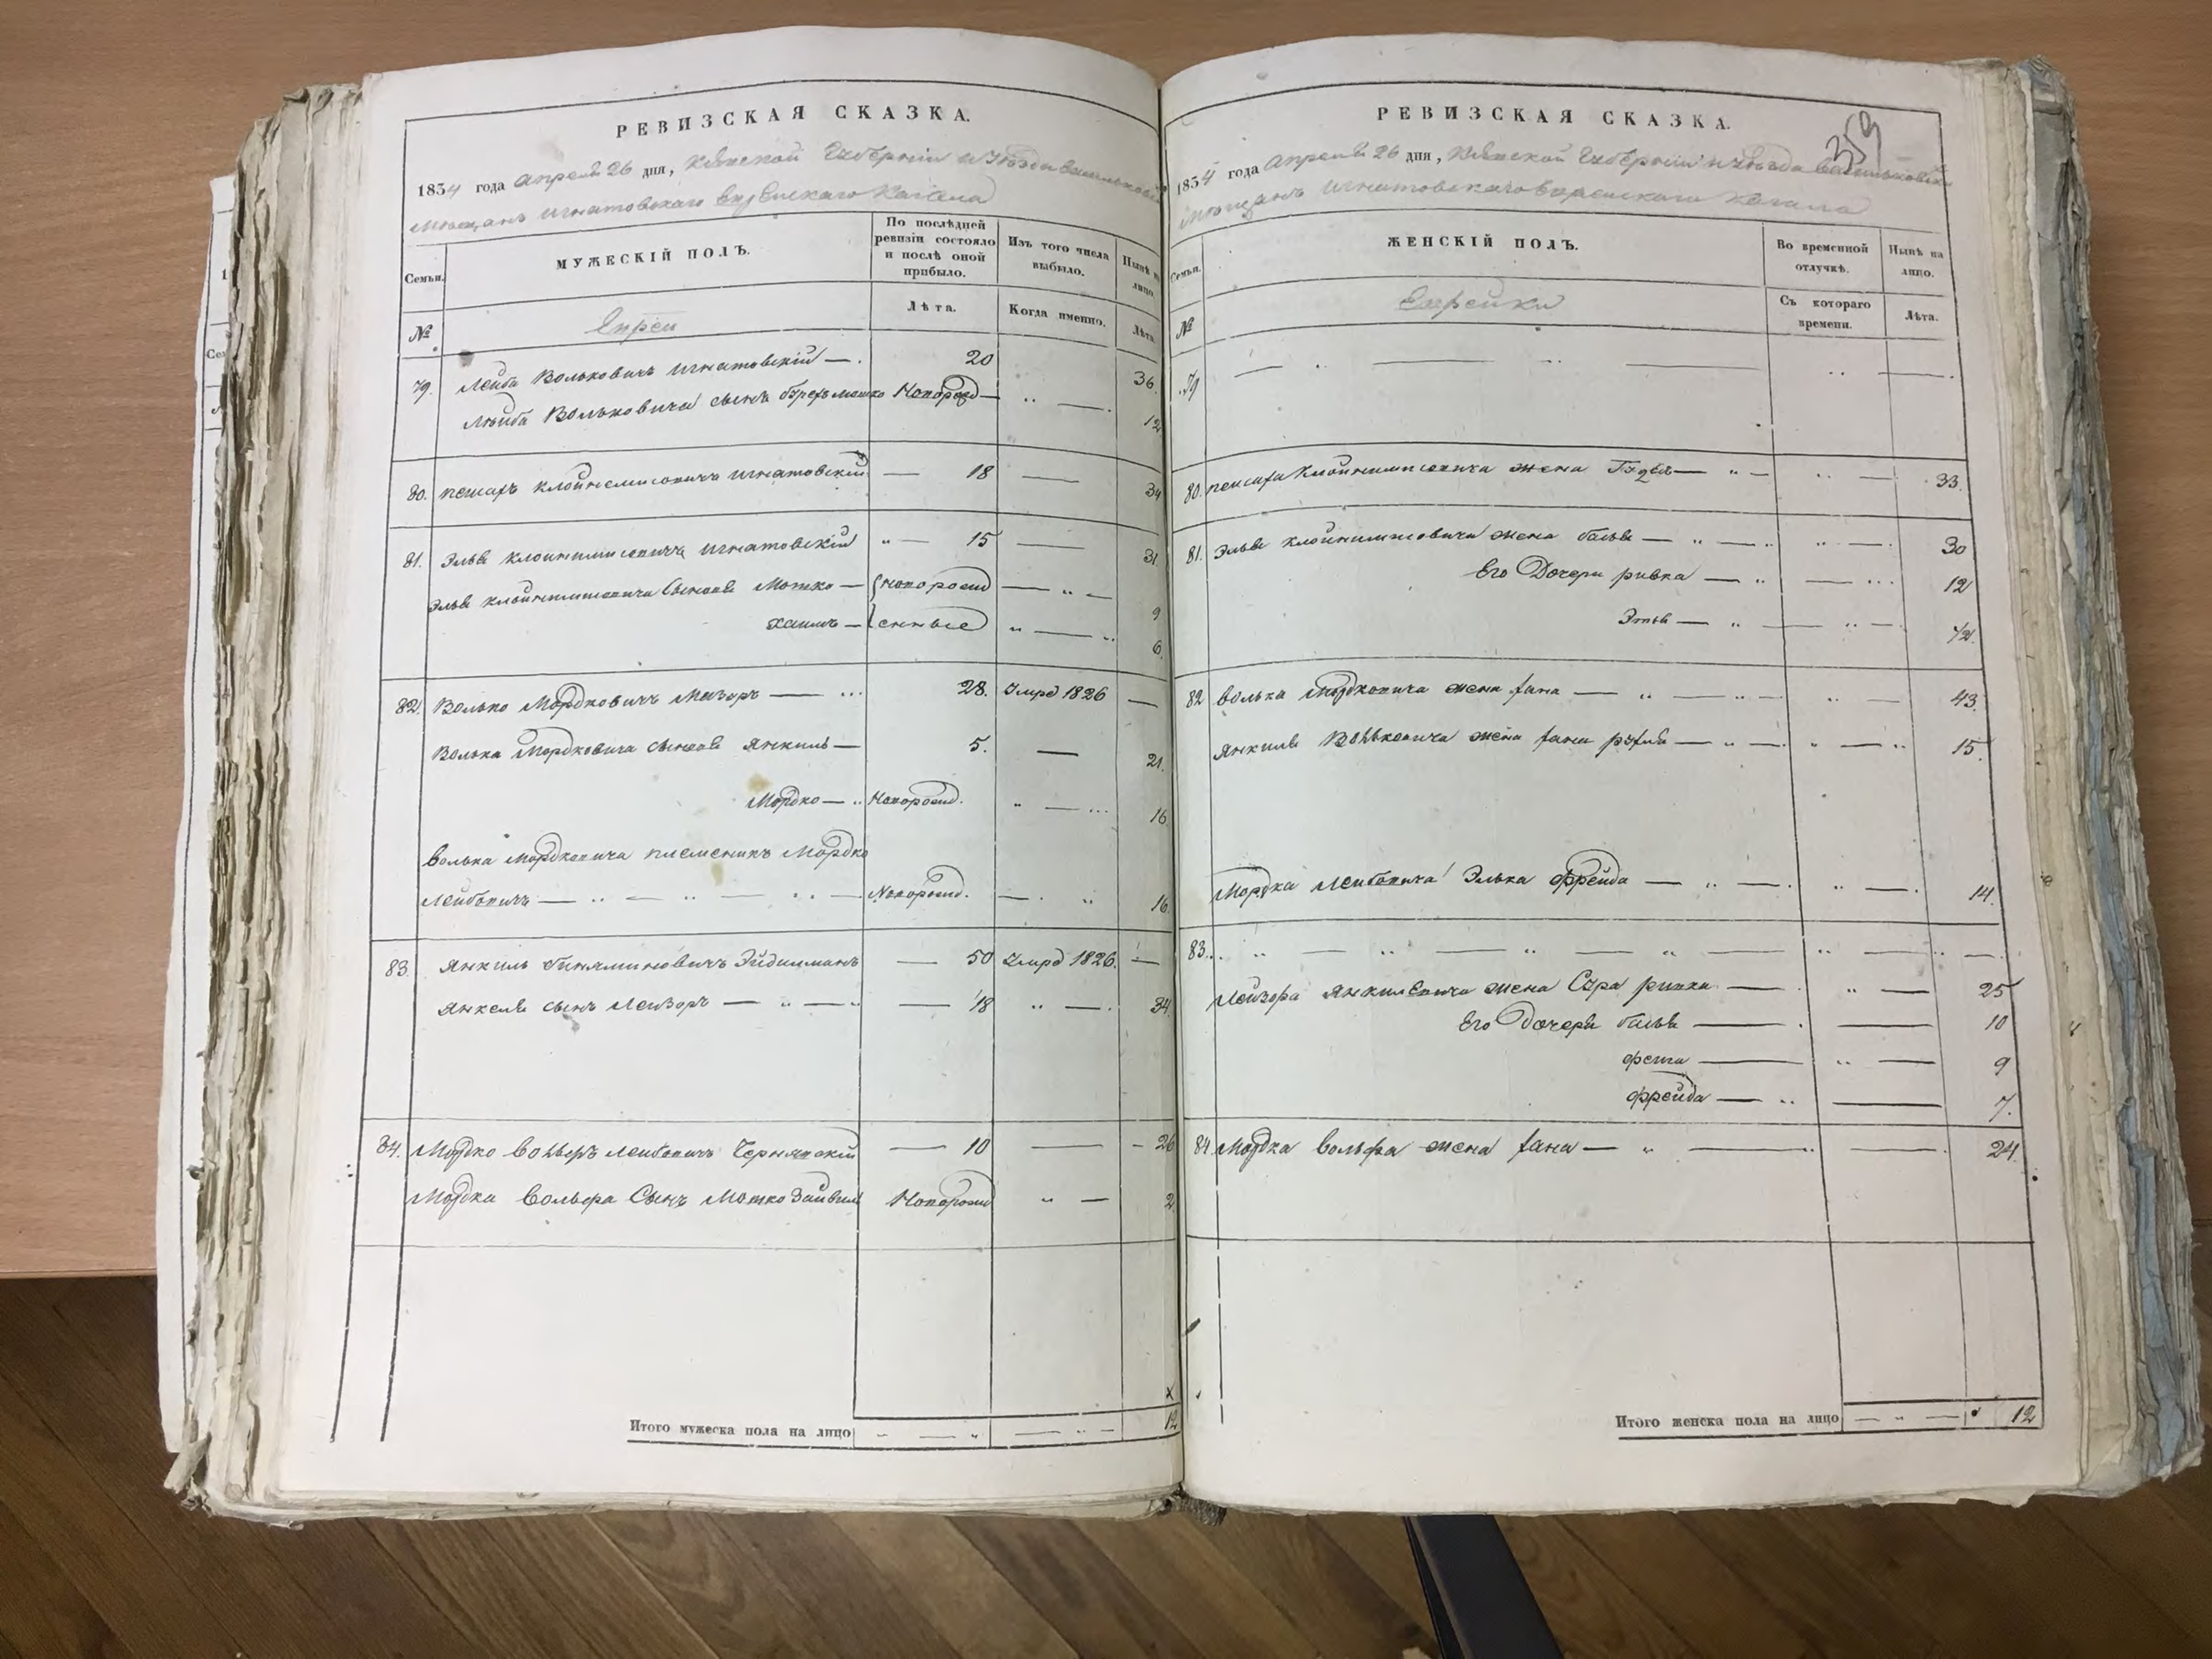 РЕВИЗСКАЯ СКАЗКА.
1834 года апреля 26 дня, Кіевской Губерніи и Уезда Васильковскаго
Мѣщанъ Игнатовскаго Еврейскаго Кагала
Семьи.
МУЖЕСКІЙ ПОЛЪ.
По послѣдней ревизіи состояло и послѣ оной прибыло.
Изъ того числа выбыло.
Нынѣ на лицо.
№
Евреи
Лѣта.
Когда именно.
Лѣта.
79. Лейба Вольковичъ Игнатовскій — . 20 36
Лейба Вольковича сынъ Мошко Новорожд — .. — . 12
80. Клойнемисовичъ Игнатовскій — 18 — 34
81. Эльь Клойнимисовичъ Игнатовскій " — 15 — 31
Эльь Клойнимисовича Сыновь Мотко — Новорожд — .. — 9
Хаимъ — енные " — .. 6
82. Волько Мордковичъ Мазоръ — ... 28. Умръ 1826 —
Волька Мордковича сыновь Янкиль — 5. — 21.
Мордко — .. Новорожд. " — ... 16
Волька Мордковича племеникъ Мордко
Лейбовичъ — .. — .. — .. — Новорожд. — . " 16
83. Янкиль Биняминовичъ Эйдилманъ — 50 Умръ 1826. —
Янкеля сынъ Лейзоръ — .. — .. — 18 .. — . 34.
84. Мордко Вольфъ Лейбовичъ Чернявскій — 10 — - 26
Мордка Вольфа Сынъ Мотко Зайвиль Новорожд " — 2
Итого мужеска пола на лицо — 12
РЕВИЗСКАЯ СКАЗКА.
359
1834 года Апреля 26 дня, Кіевской Губерніи и уезда Васильковска
Мѣщанъ Игнатовскаго Еврейскаго Кагала
Семьи.
ЖЕНСКІЙ ПОЛЪ.
Во временной отлучкѣ.
Нынѣ на лицо.
№
Еврейки
Съ котораго времени.
Лѣта.
79 — .. — .. — .. — .
80. Клойнимисовича жена — " — .. — . 33.
81. Эльь Клойнимисовича жена бась — " — . " — . 30
Его Дочери ривка — .. — ... 12
Этль — .. — .. — 1/2.
82 Волька Мордковича жена хана — .. — .. — .. — 43.
Янкиля Вольковича жена хана рухля — .. — . " — .. 15.
Мордка Лейбовича Элька Фрейда — .. — . .. — . 14.
83. .. — .. — .. — .. — .. — .. — .
Лейзора Янкилевича жена Сура ривка — . .. — 25
Его Дочерь бась — . — 10
фейга — .. — 9
Фрейда — .. — 7.
84 Мордка Вольфа жена хана — .. — .. — . 24.
Итого женска пола на лицо — " — 12